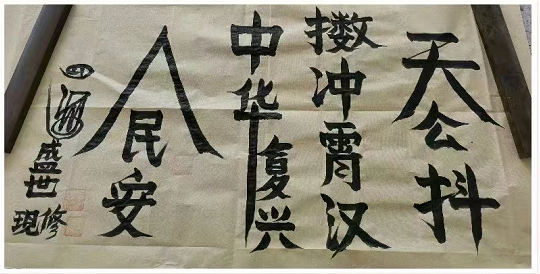 天公抖
擞冲霄汉
中华复兴
人民安
四
盛世
修現